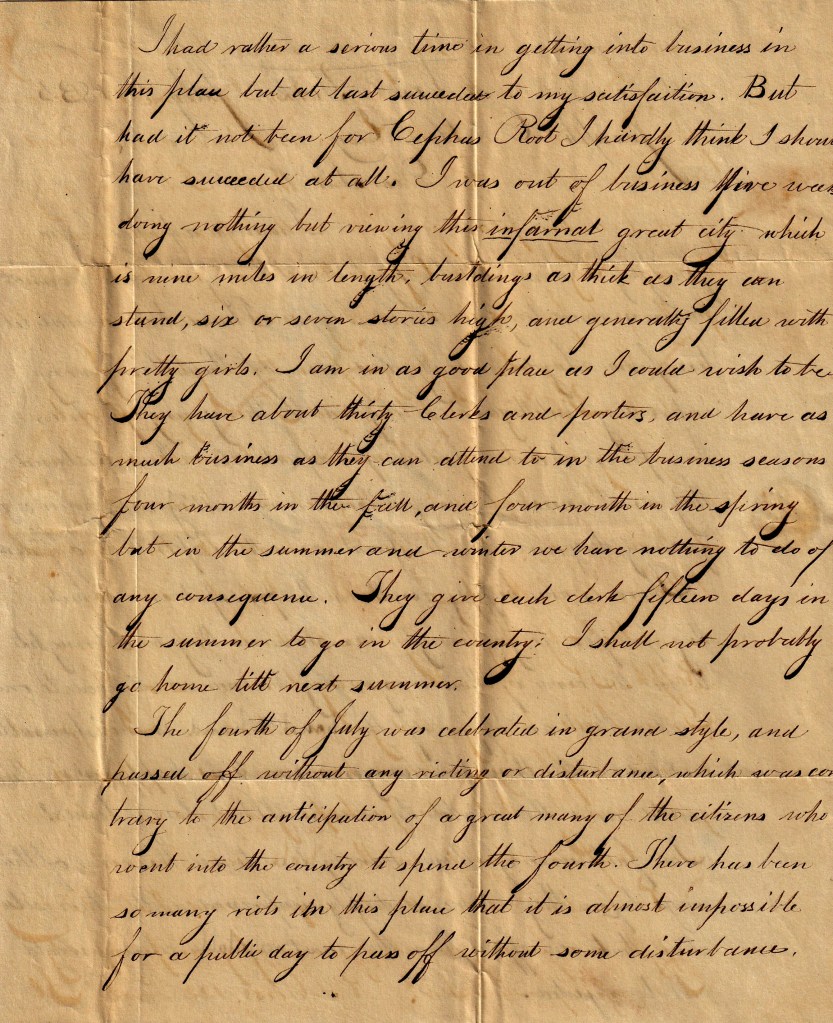 I had rather a serious time in getting into business in
this place but at last succeeded to my satisfaction. But
had it not been for Cephas Root I hardly think I shou
have succeeded at all. I was out of business five wee
doing nothing but viewing this infarnal great city which
is nine miles in length, buildings as thick as they can
stand, six or seven stories high, and generally filled with
pretty girls. I am in as good place as I could wish to be
They have about thirty Clerks and porters, and have as
much business as they can attend to in the business seasons
four months in the fall, and four month in the spring
but in the summer and winter we have nothing to do of
any consequence. They give each clerk fifteen days in
the summer to go in the country; I shall not probably
go home till next summer.
The fourth of July was celebrated in grand style, and
passed off without any rioting or disturbance, which was con
trary to the anticipation of a great many of the citizens who
went into the country to spend the fourth. There has been
so many riots in this place that it is almost impossible
for a public day to pass off without some disturbance.